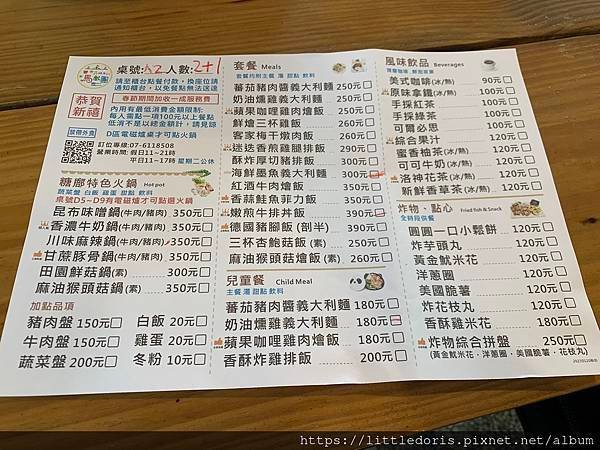 桌號: A2 人數: 2+1
請至櫃台點餐付款,換座位請
通知櫃台,以免餐點無法送達
恭賀
新禧
春節期間加收一成服務費
內用有最低消費金額限制:
每人需點一項100元以上餐點
低消不是以總金額計,請見諒
禁帶外食
D區電磁爐桌才可點火鍋
訂位專線:07-6118508
營業時間: 假日11~21時
平日11~17時 星期二公休
糖廍特色火鍋 Hot pot
蔬菜盤 白飯 雞蛋 甜品 飲料
桌號D5~D9有電磁爐才可點選火鍋
昆布味噌鍋(牛肉/豬肉) 350元
香濃牛奶鍋(牛肉/豬肉) 350元
川味麻辣鍋(牛肉/豬肉) 350元
甘蔗豚骨鍋(牛肉/豬肉) 350元
田園鮮菇鍋(素) 300元
麻油猴頭菇鍋(素) 350元
加點品項
豬肉盤 150元 白飯 20元
牛肉盤 150元 雞蛋 20元
蔬菜盤 200元 冬粉 10元
套餐 Meals
套餐均附主餐 湯 甜點 飲料
蕃茄豬肉醬義大利麵 250元
奶油燻雞義大利麵 250元
蘋果咖哩雞肉燴飯 250元
鮮燴三杯雞飯 260元
客家梅干燉肉飯 260元
迷迭香煎雞腿排飯 280元
酥炸厚切豬排飯 280元
海鮮墨魚義大利麵 300元
紅酒牛肉燴飯 350元
香蒜鮭魚菲力飯 350元
嫩煎牛排丼飯 390元
德國豬腳飯(剖半) 390元
三杯杏鮑菇飯(素) 250元
麻油猴頭菇飯(素) 260元
兒童餐 Child Meal
主餐 湯 甜點 飲料
蕃茄豬肉醬義大利麵 180元
奶油燻雞義大利麵 180元
蘋果咖哩雞肉燴飯 180元
香酥炸雞排飯 200元
風味飲品 Beverages
美式咖啡(冰/熱) 90元
原味拿鐵(冰/熱) 120元
手採紅茶 120元
手採綠茶 120元
可爾必思 120元
綜合果汁 120元
蜜香柚茶(冰/熱) 120元
可可牛奶(冰/熱) 120元
洛神花茶(冰/熱) 120元
新鮮香草茶(冰/熱) 120元
炸物、點心 Fried fish & Snack
全時段供餐
圓圓一口小鬆餅 120元
炸芋頭丸 120元
黃金魷米花 120元
洋蔥圈 120元
美國脆薯 120元
炸花枝丸 120元
香酥雞米花 180元
炸物綜合拼盤 250元
(黃金魷米花、洋蔥圈、美國脆薯、花枝丸)
https://littledoris.pixnet.net/album